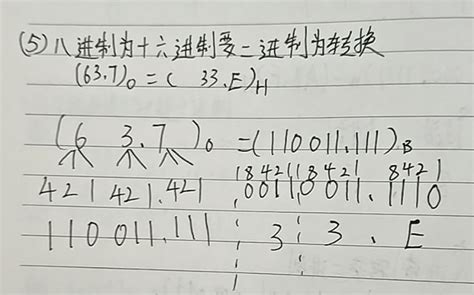 (5)八进制为十六进制要二进制为转换
(63.7)₀ = ( 33.E)H
(6 3.7)₀ = (110011.111)B
421 421.421 8421 8421 8421
0011 0011.1110
110 011.111 3 3 . E